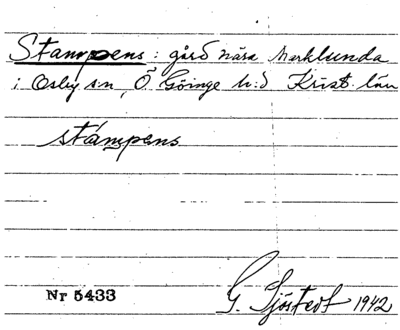 Stampens: gård nära Marklunda
i Osby sn, Ö Göinge h:d Krist. län
stámpens
Nr 5433
G. Sjöstedt 1942